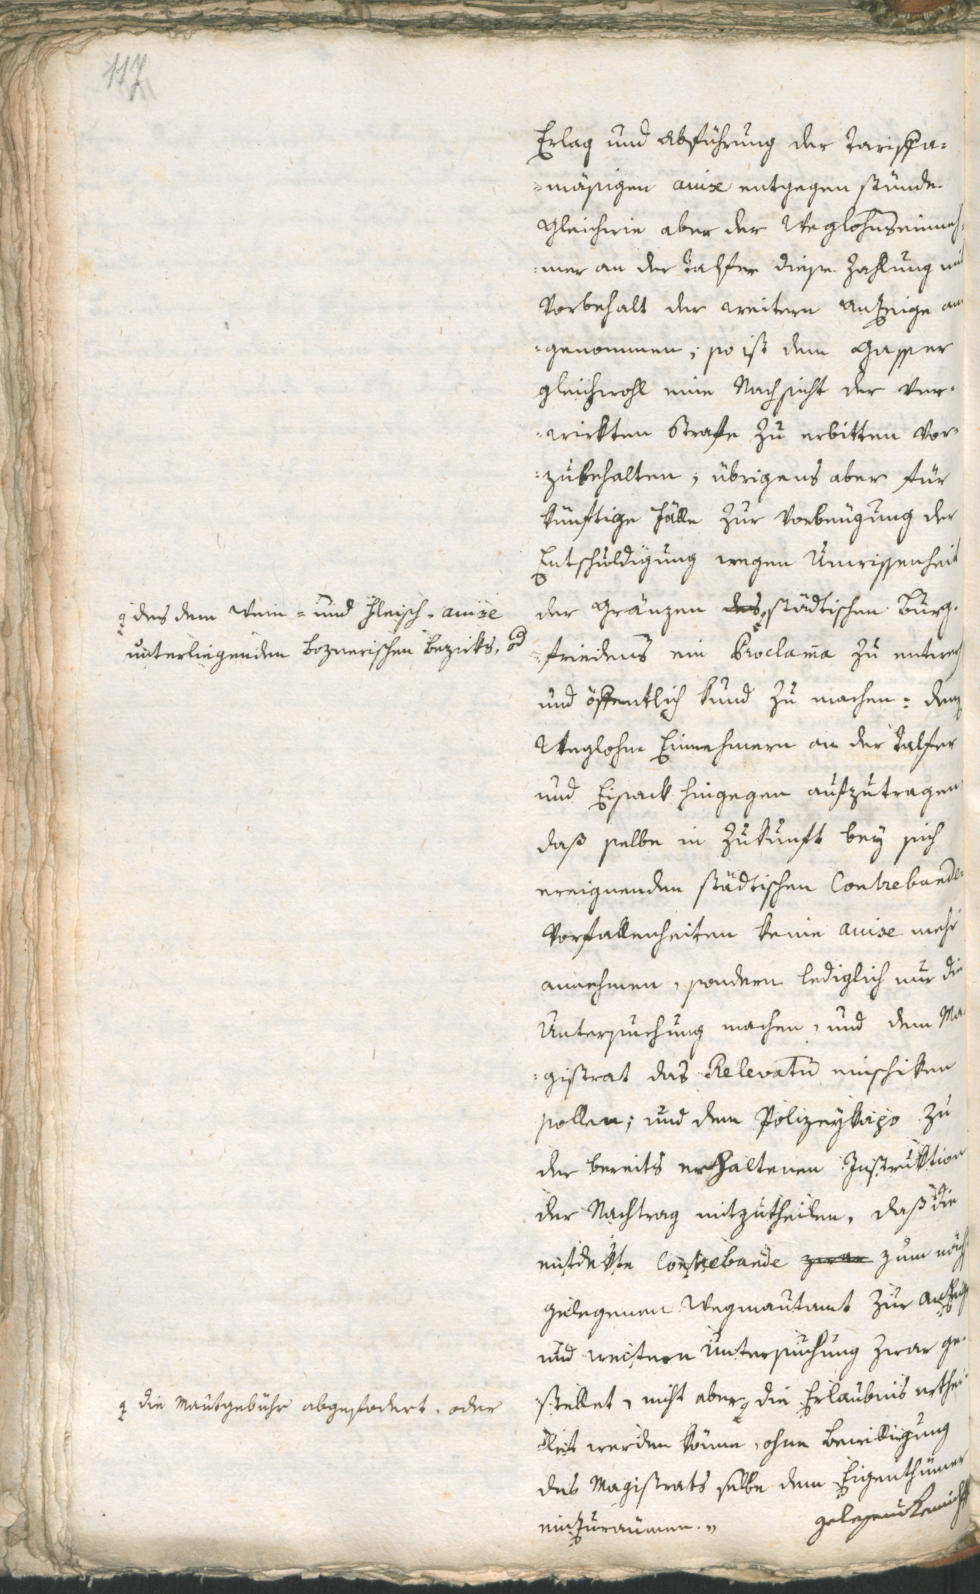 117
Erlag und Abführung der Tariffa-
-mäsigen accise entgegen stünde.
Gleichwie aber der Weglohnseinneh-
-mer an der Talfer diese Zahlung mit
Vorbehalt der weitern Anzeige an-
-genommen; so ist dem Gasser
gleichwohl eine Nachsicht der ver-
-wirkten Strafe zu erbitten vor-
-zubehalten; übrigens aber für
künftige Fälle zur Vorbeugung der
Entschuldigung wegen Unwissenheit
der Gränzen des städtischen Burg-
-friedens ein Proclama zu entwer
und öffentlich kund zu machen: den
Weglohn Einnehmern an der Talfer
und Eisack hingegen aufzutragen
daß selbe in Zukunft bey sich
ereignenden städtischen Contrebande-
Vorfallenheiten keine accise mehr
annehmen, sondern lediglich nur die
Untersuchung machen, und dem Ma-
-gistrat das Relevatum einschiken
sollen; und dem Polizeykapo zu
der bereits erhaltenen Instruktion
der Nachtrag mitzutheilen, daß die
entdekte Contrebande zwar zum näch
gelegenen Wegmautamt zur Anzeige
und weitern Untersuchung zwar ge-
-stellet, nicht aber die Erlaubnis erthei-
let werden könne, ohne Bewilligung
des Magistrats selbe dem Eigenthümer
einzuraumen.
des dem Wein- und Fleisch-accise
unterliegenden Boznerischen Bezirks, od
die Mautgebühr abgefodert, oder